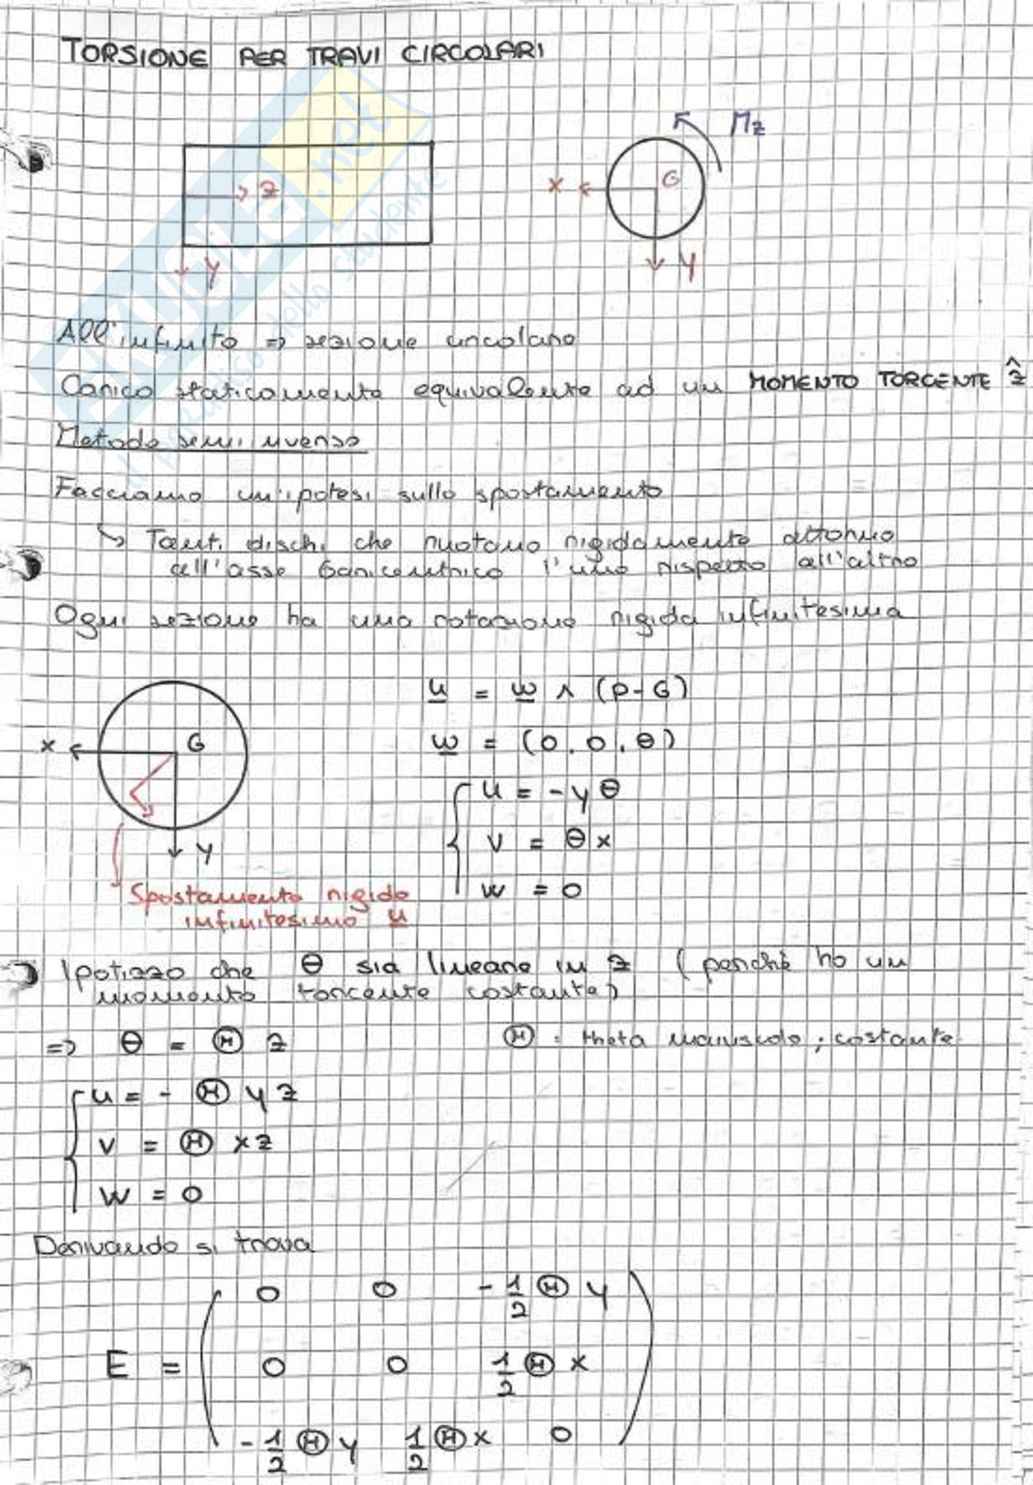 TORSIONE PER TRAVI CIRCOLARI
z
y
x
G
Mz
y
All'infinito => sezione circolare
Carico staticamente equivalente ad un MOMENTO TORCENTE ẑ
Metodo semi inverso
Facciamo un'ipotesi sullo spostamento
↳ Tanti dischi che ruotano rigidamente attorno
all'asse baricentrico l'uno rispetto all'altro
Ogni sezione ha una rotazione rigida infinitesima
x
G
y
Spostamento rigido
infinitesimo u
u = w ∧ (P-G)
w = (0, 0, θ)
u = -yθ
v = θx
w = 0
Ipotizzo che θ sia lineare in z (perché ho un
momento torcente costante)
=> θ = Θ z
Θ: theta maiuscolo; costante
u = - Θ y z
v = Θ x z
w = 0
Derivando si trova
E = ( 0 0 -1/2 Θ y
0 0 1/2 Θ x
-1/2 Θ y 1/2 Θ x 0 )